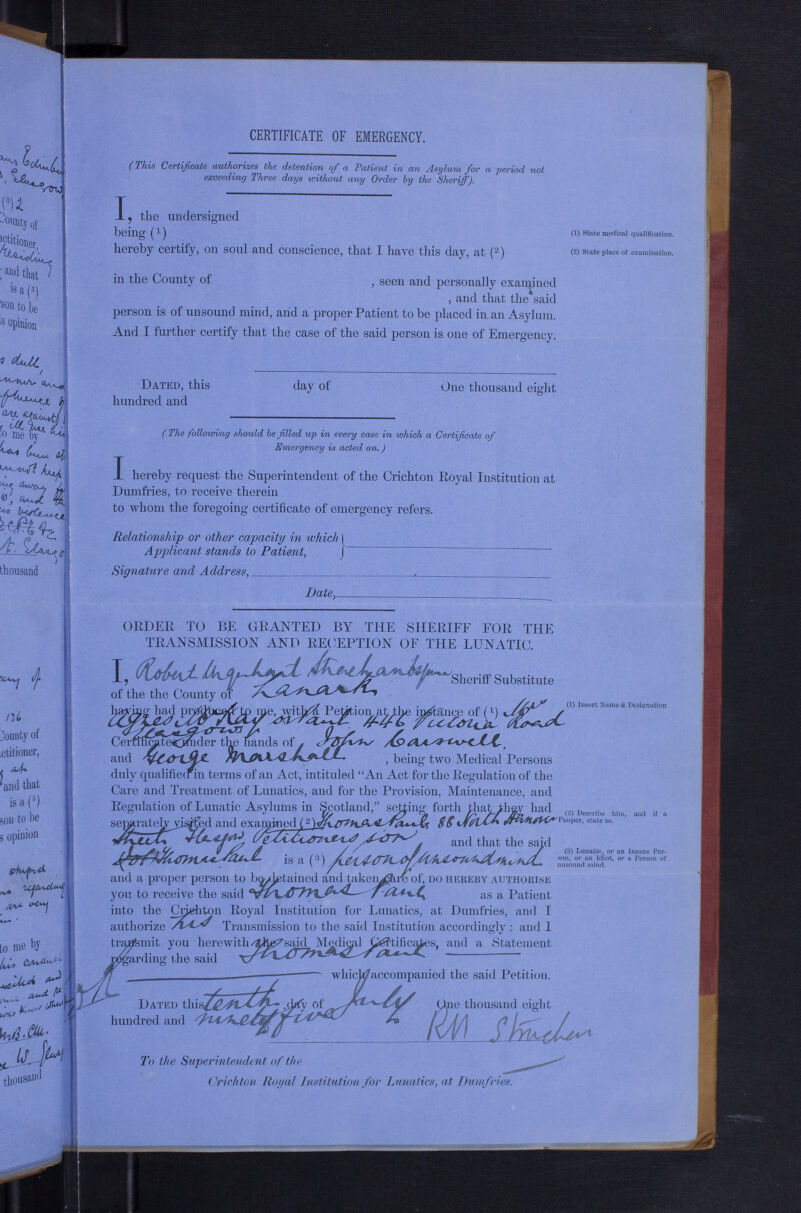 CERTIFICATE OF EMERGENCY.
(This Certificate authorizes the detention of a Patient in an Asylum for a period not
exceeding Three days without any Order by the Sheriff).
I, the undersigned
being (1)
(1) State medical qualification.
hereby certify, on soul and conscience, that I have this day, at (2)
(2) State place of examination.
in the County of , seen and personally examined
, and that the said
person is of unsound mind, and a proper Patient to be placed in an Asylum.
And I further certify that the case of the said person is one of Emergency.
DATED, this day of One thousand eight
hundred and
(The following should be filled up in every case in which a Certificate of
Emergency is acted on.)
I hereby request the Superintendent of the Crichton Royal Institution at
Dumfries, to receive therein
to whom the foregoing certificate of emergency refers.
Relationship or other capacity in which
Applicant stands to Patient,
Signature and Address,
Date,
ORDER TO BE GRANTED BY THE SHERIFF FOR THE
TRANSMISSION AND RECEPTION OF THE LUNATIC.
I, Robert Strachan Sheriff Substitute
of the the County of Lanark
having had produced to me, with a Petition at the instance of (1) Mrs
(1) Insert Name & Designation
Agnes McKay or Paul 446 Victoria Road
Glasgow
Certificates under the hands of John Carswell
and George Marshall , being two Medical Persons
duly qualified in terms of an Act, intituled "An Act for the Regulation of the
Care and Treatment of Lunatics, and for the Provision, Maintenance, and
Regulation of Lunatic Asylums in Scotland," setting forth that they had
separately visited and examined (2) Thomas Paul, 88 North Hanover
(2) Describe him, and if a
Pauper, state so.
Street, Glasgow Petitioners son and that the said
Thomas Paul is a (3) person of unsound mind
(3) Lunatic, or an Insane Per-
son, or an Idiot, or a Person of
unsound mind.
and a proper person to be detained and taken care of, DO HEREBY AUTHORISE
you to receive the said Thomas Paul as a Patient
into the Crichton Royal Institution for Lunatics, at Dumfries, and I
authorize his Transmission to the said Institution accordingly : and I
transmit you herewith the said Medical Certificates, and a Statement
regarding the said Thomas Paul
which accompanied the said Petition.
DATED this tenth day of July One thousand eight
hundred and ninety five
RM Strachan
To the Superintendent of the
Crichton Royal Institution for Lunatics, at Dumfries.